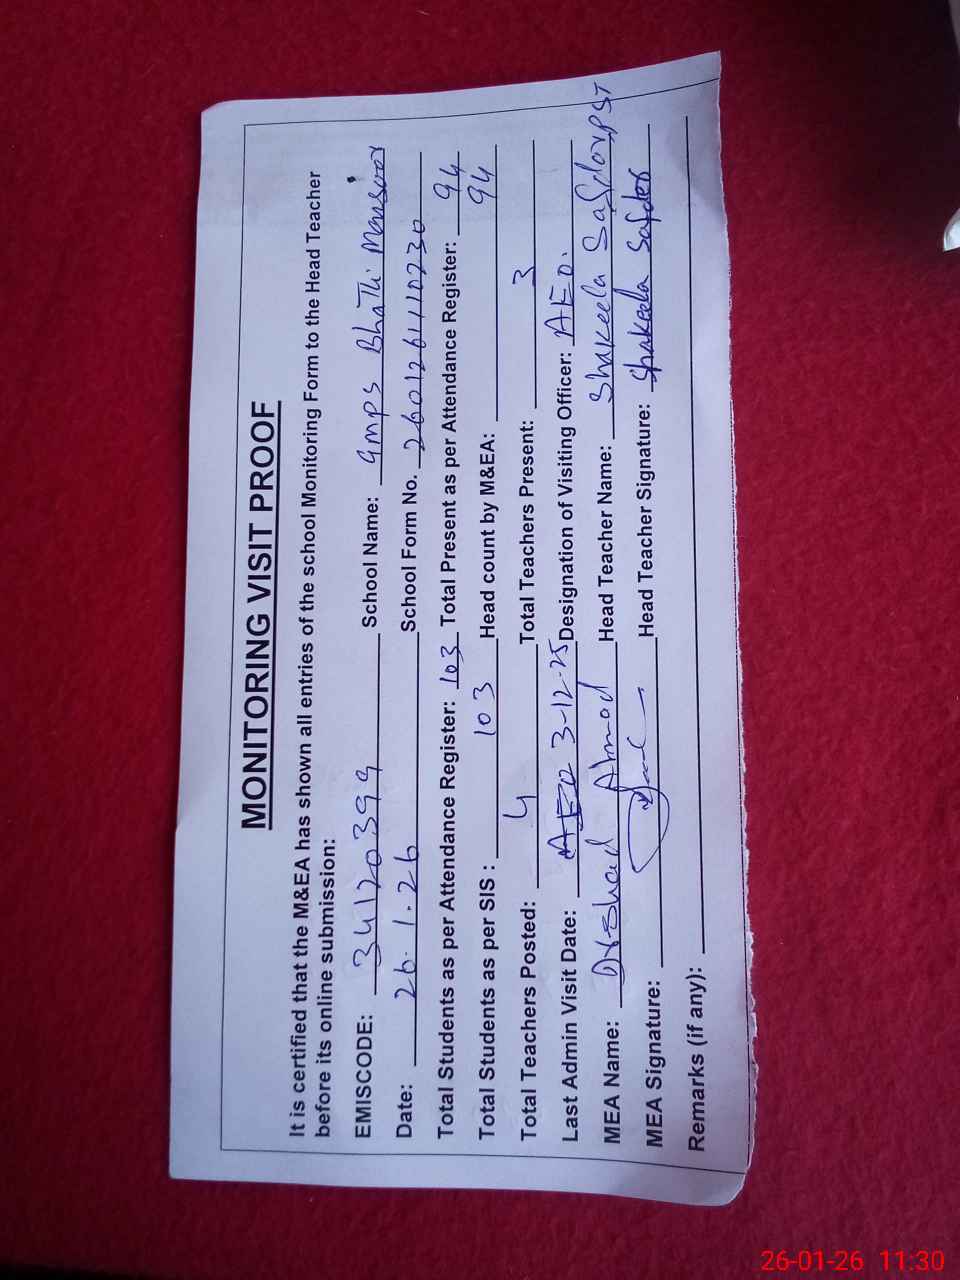 MONITORING VISIT PROOF
It is certified that the M&EA has shown all entries of the school Monitoring Form to the Head Teacher
before its online submission:
EMISCODE: 34120399 School Name: GMPS Bhatti Mansoor
Date: 26.1.26 School Form No. 26012611110230
Total Students as per Attendance Register: 103 Total Present as per Attendance Register: 94
Total Students as per SIS : 103 Head count by M&EA: 94
Total Teachers Posted: 4 Total Teachers Present: 3
Last Admin Visit Date: AEO 3-12-25 Designation of Visiting Officer: AEO.
MEA Name: Ahmad Head Teacher Name: Shakeela Safdar PST
MEA Signature: Head Teacher Signature: Shakeela Safder
Remarks (if any):
26-01-26 11:30